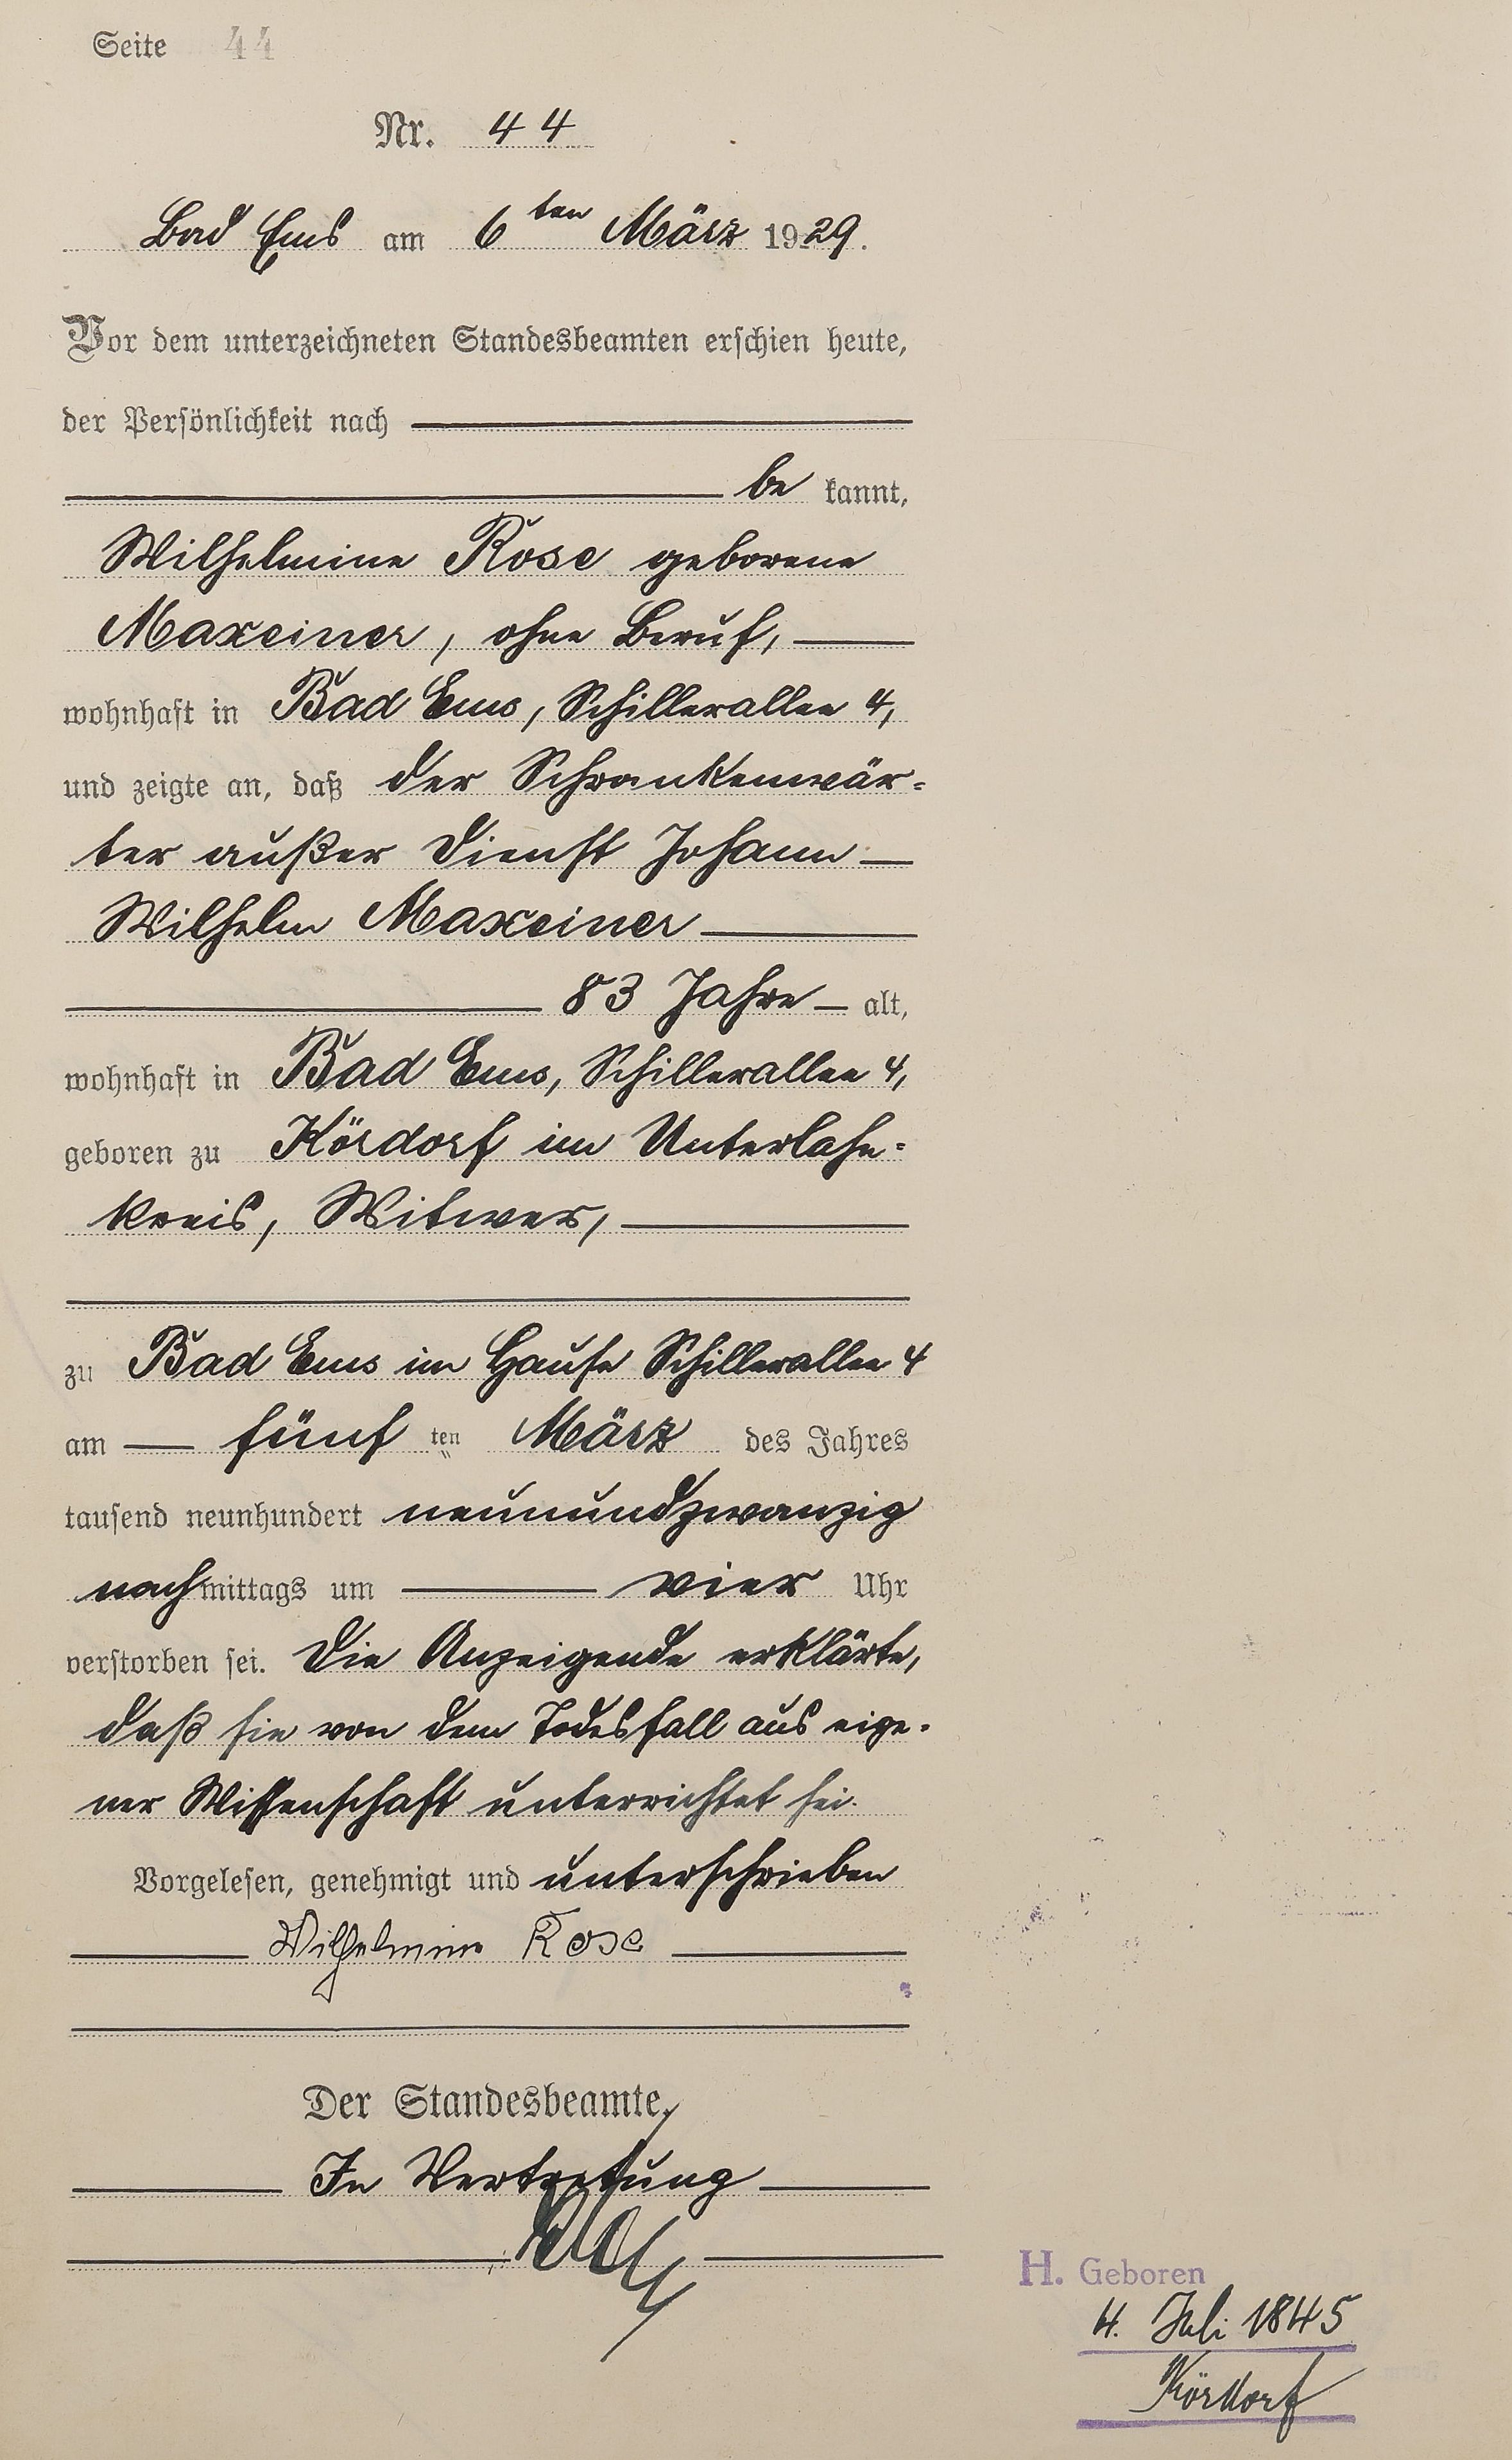 Seite 44
Nr. 44
Bad Ems am 6ten März 1929.
Vor dem unterzeichneten Standesbeamten erschien heute,
der Persönlichkeit nach
be kannt,
Wilhelmine Rose geborene
Maxeiner, ohne Beruf,
wohnhaft in Bad Ems, Schillerallee 4,
und zeigte an, daß der Schrankenwär=
ter außer Dienst Johann
Wilhelm Maxeiner
83 Jahre alt,
wohnhaft in Bad Ems, Schillerallee 4,
geboren zu Kördorf im Unterlahn=
kreis, Witwer,
zu Bad Ems im Hause Schillerallee 4
am fünf ten März des Jahres
tausend neunhundert neunundzwanzig
nachmittags um vier Uhr
verstorben sei. Die Anzeigende erklärte,
daß sie von dem Todesfall aus eige-
ner Wissenschaft unterrichtet sei.
Vorgelesen, genehmigt und unterschrieben
Wilhelmine Rose
Der Standesbeamte.
In Vertretung
H. Geboren
4. Juli 1845
Kördorf